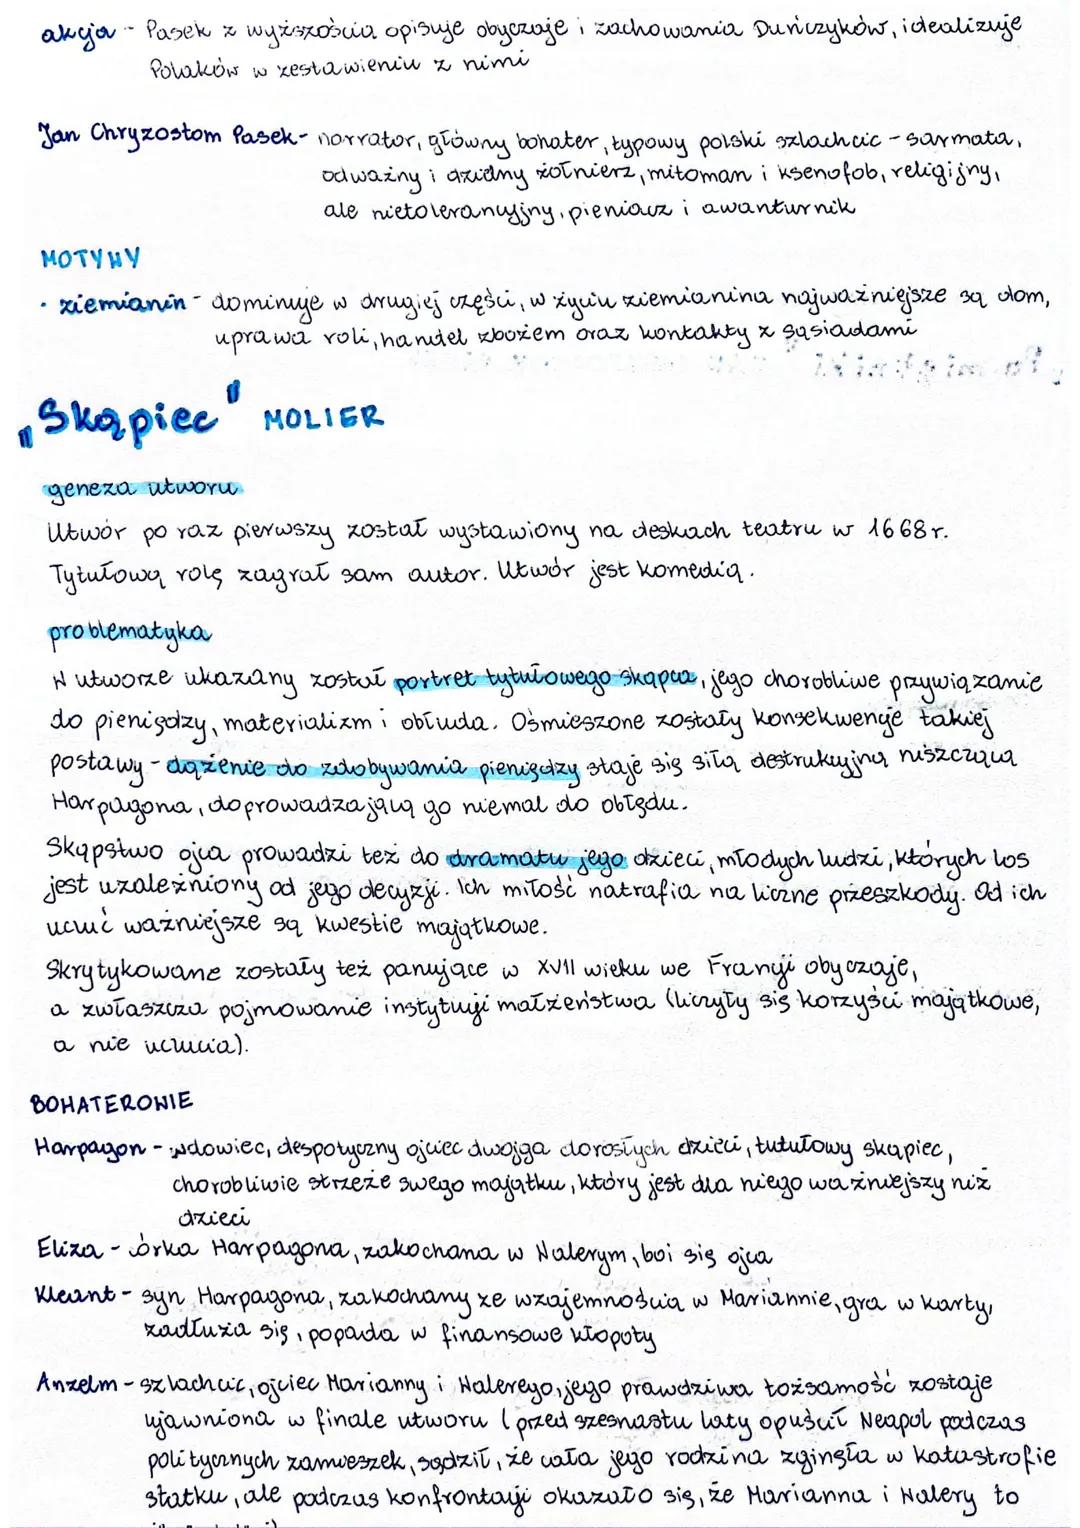 akcja - Pasek z wyższością opisuje obyczaje i zachowania Duńczyków, idealizuje
Polaków w zestawieniu z nimi
Jan Chryzostom Pasek - narrator, główny bohater, typowy polski szlachcic - sarmata,
odważny i dzielny żołnierz, mitoman i ksenofob, religijny,
ale nietolerancyjny, pieniacz i awanturnik
MOTYWY
• ziemianin - dominuje w drugiej części, w życiu ziemianina najważniejsze są dom,
uprawa roli, handel zbożem oraz kontakty z sąsiadami
„Skąpiec" MOLIER
geneza utworu
Utwór po raz pierwszy został wystawiony na deskach teatru w 1668 r.
Tytułową rolę zagrał sam autor. Utwór jest komedią.
problematyka
W utworze ukazany został portret tytułowego skąpca, jego chorobliwe przywiązanie
do pieniędzy, materializm i obłuda. Ośmieszone zostały konsekwencje takiej
postawy - dążenie do zdobywania pieniędzy staje się siłą destrukcyjną niszczącą
Harpagona, doprowadzającą go niemal do obłędu.
Skąpstwo ojca prowadzi też do dramatu jego dzieci, młodych ludzi, których los
jest uzależniony od jego decyzji. Ich miłość natrafia na liczne przeszkody. Od ich
uczuć ważniejsze są kwestie majątkowe.
Skrytykowane zostały też panujące w XVII wieku we Francji obyczaje,
a zwłaszcza pojmowanie instytucji małżeństwa (liczyły się korzyści majątkowe,
a nie uczucia).
BOHATEROWIE
Harpagon - wdowiec, despotyczny ojciec dwojga dorosłych dzieci, tutułowy skąpiec,
chorobliwie strzeże swego majątku, który jest dla niego ważniejszy niż
dzieci
Eliza - córka Harpagona, zakochana w Walerym, boi się ojca
Kleant - syn Harpagona, zakochany ze wzajemnością w Mariannie, gra w karty,
zadłuża się, popada w finansowe kłopoty
Anzelm - szlachcic, ojciec Marianny i Walerego, jego prawdziwa tożsamość zostaje
ujawniona w finale utworu (przed szesnastu laty opuścił Neapol podczas
politycznych zamieszek, sądził, że cała jego rodzina zginęła w katastrofie
statku, ale podczas konfrontacji okazało się, że Marianna i Walery to